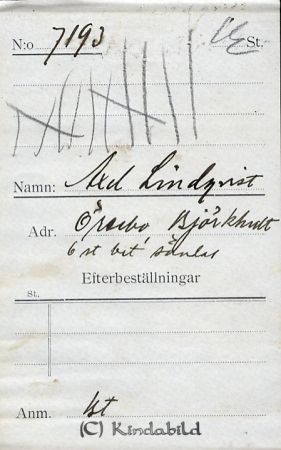 N:o 7193 St.
Namn: Axel Lindqvist
Adr. Örebo Björkhult
6 st bet sändas
Efterbeställningar
St.
Anm. bt
(C) Kindabild